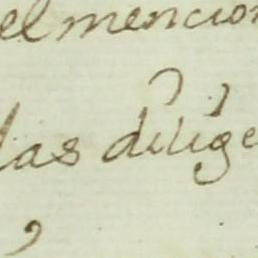 el mencion
las dilige